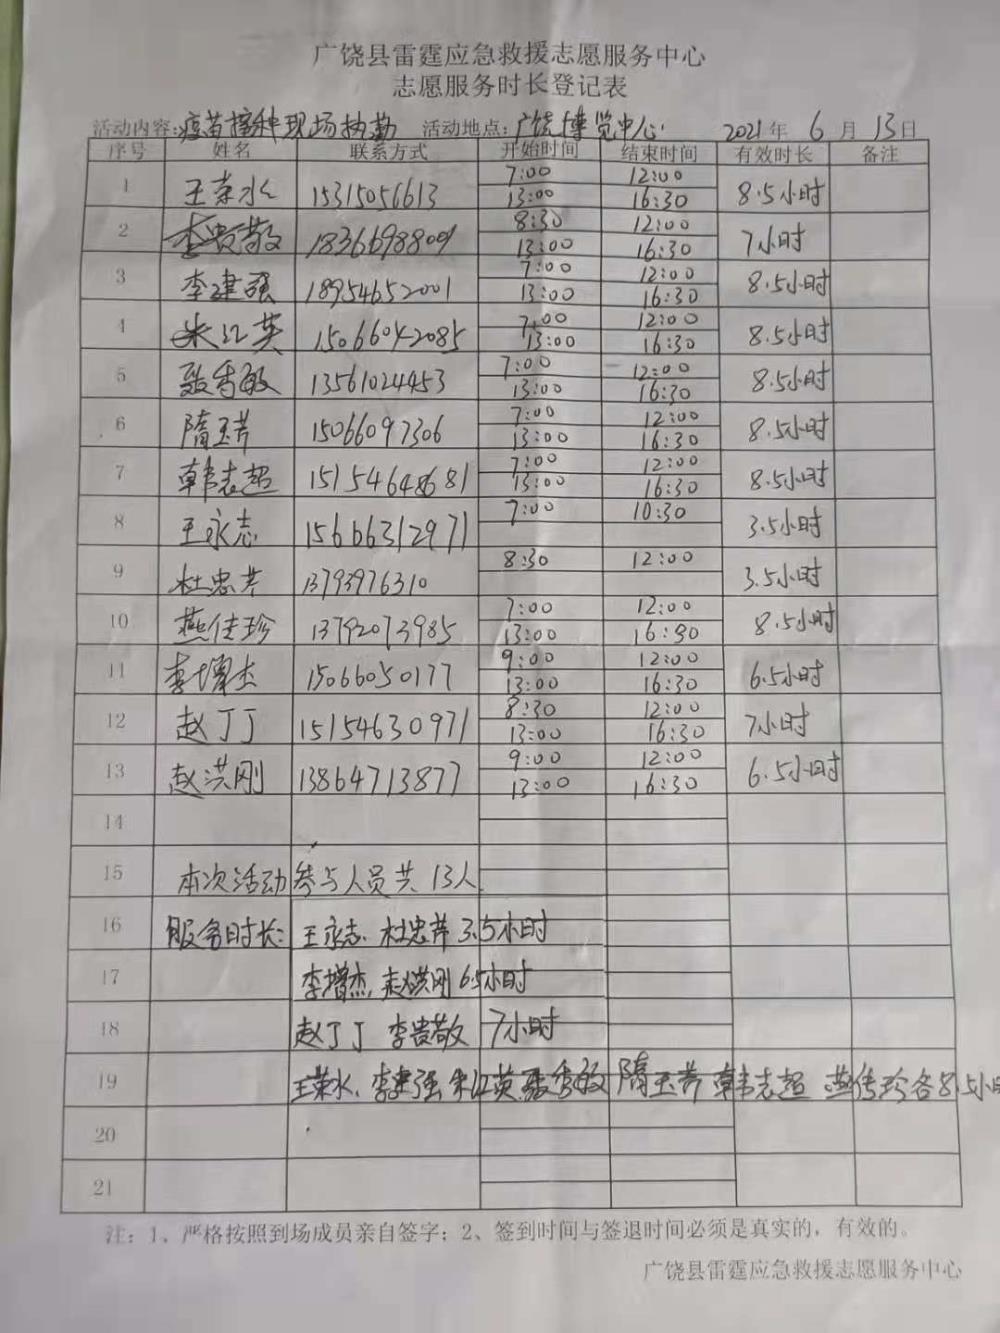 广饶县雷霆应急救援志愿服务中心
志愿服务时长登记表
活动内容:疫苗接种现场执勤 活动地点:广饶博览中心 2021年 6月 13日
序号 姓名 联系方式 开始时间 结束时间 有效时长 备注
1 王荣水 15315056613 7:00 12:00 8.5小时
13:00 16:30
2 李贵敬 18366988009 8:30 12:00 7小时
13:00 16:30
3 李建强 18954652001 7:00 12:00 8.5小时
13:00 16:30
4 朱江英 15066042085 7:00 12:00 8.5小时
13:00 16:30
5 张秀敏 13561024453 7:00 12:00 8.5小时
13:00 16:30
6 隋玉芹 15066097306 7:00 12:00 8.5小时
13:00 16:30
7 韩志超 15154648681 7:00 12:00 8.5小时
13:00 16:30
8 王永志 15666312971 7:00 10:30 3.5小时
9 杜忠芹 13793976310 8:30 12:00 3.5小时
10 燕佳珍 13792073985 7:00 12:00 8.5小时
13:00 16:30
11 李增杰 15066050177 9:00 12:00 6.5小时
13:00 16:30
12 赵丁丁 15154630971 8:30 12:00 7小时
13:00 16:30
13 赵洪刚 13864713877 9:00 12:00 6.5小时
13:00 16:30
14
15 本次活动参与人员共13人
16 服务时长: 王永志、杜忠芹 3.5小时
17 李增杰,赵洪刚 6.5小时
18 赵丁丁 李贵敬 7小时
19 王荣水、李建强 朱江英 张秀敏 隋玉芹 韩志超 燕佳珍各8.5小时
20
21
注:1、严格按照到场成员亲自签字;2、签到时间与签退时间必须是真实的,有效的。
广饶县雷霆应急救援志愿服务中心